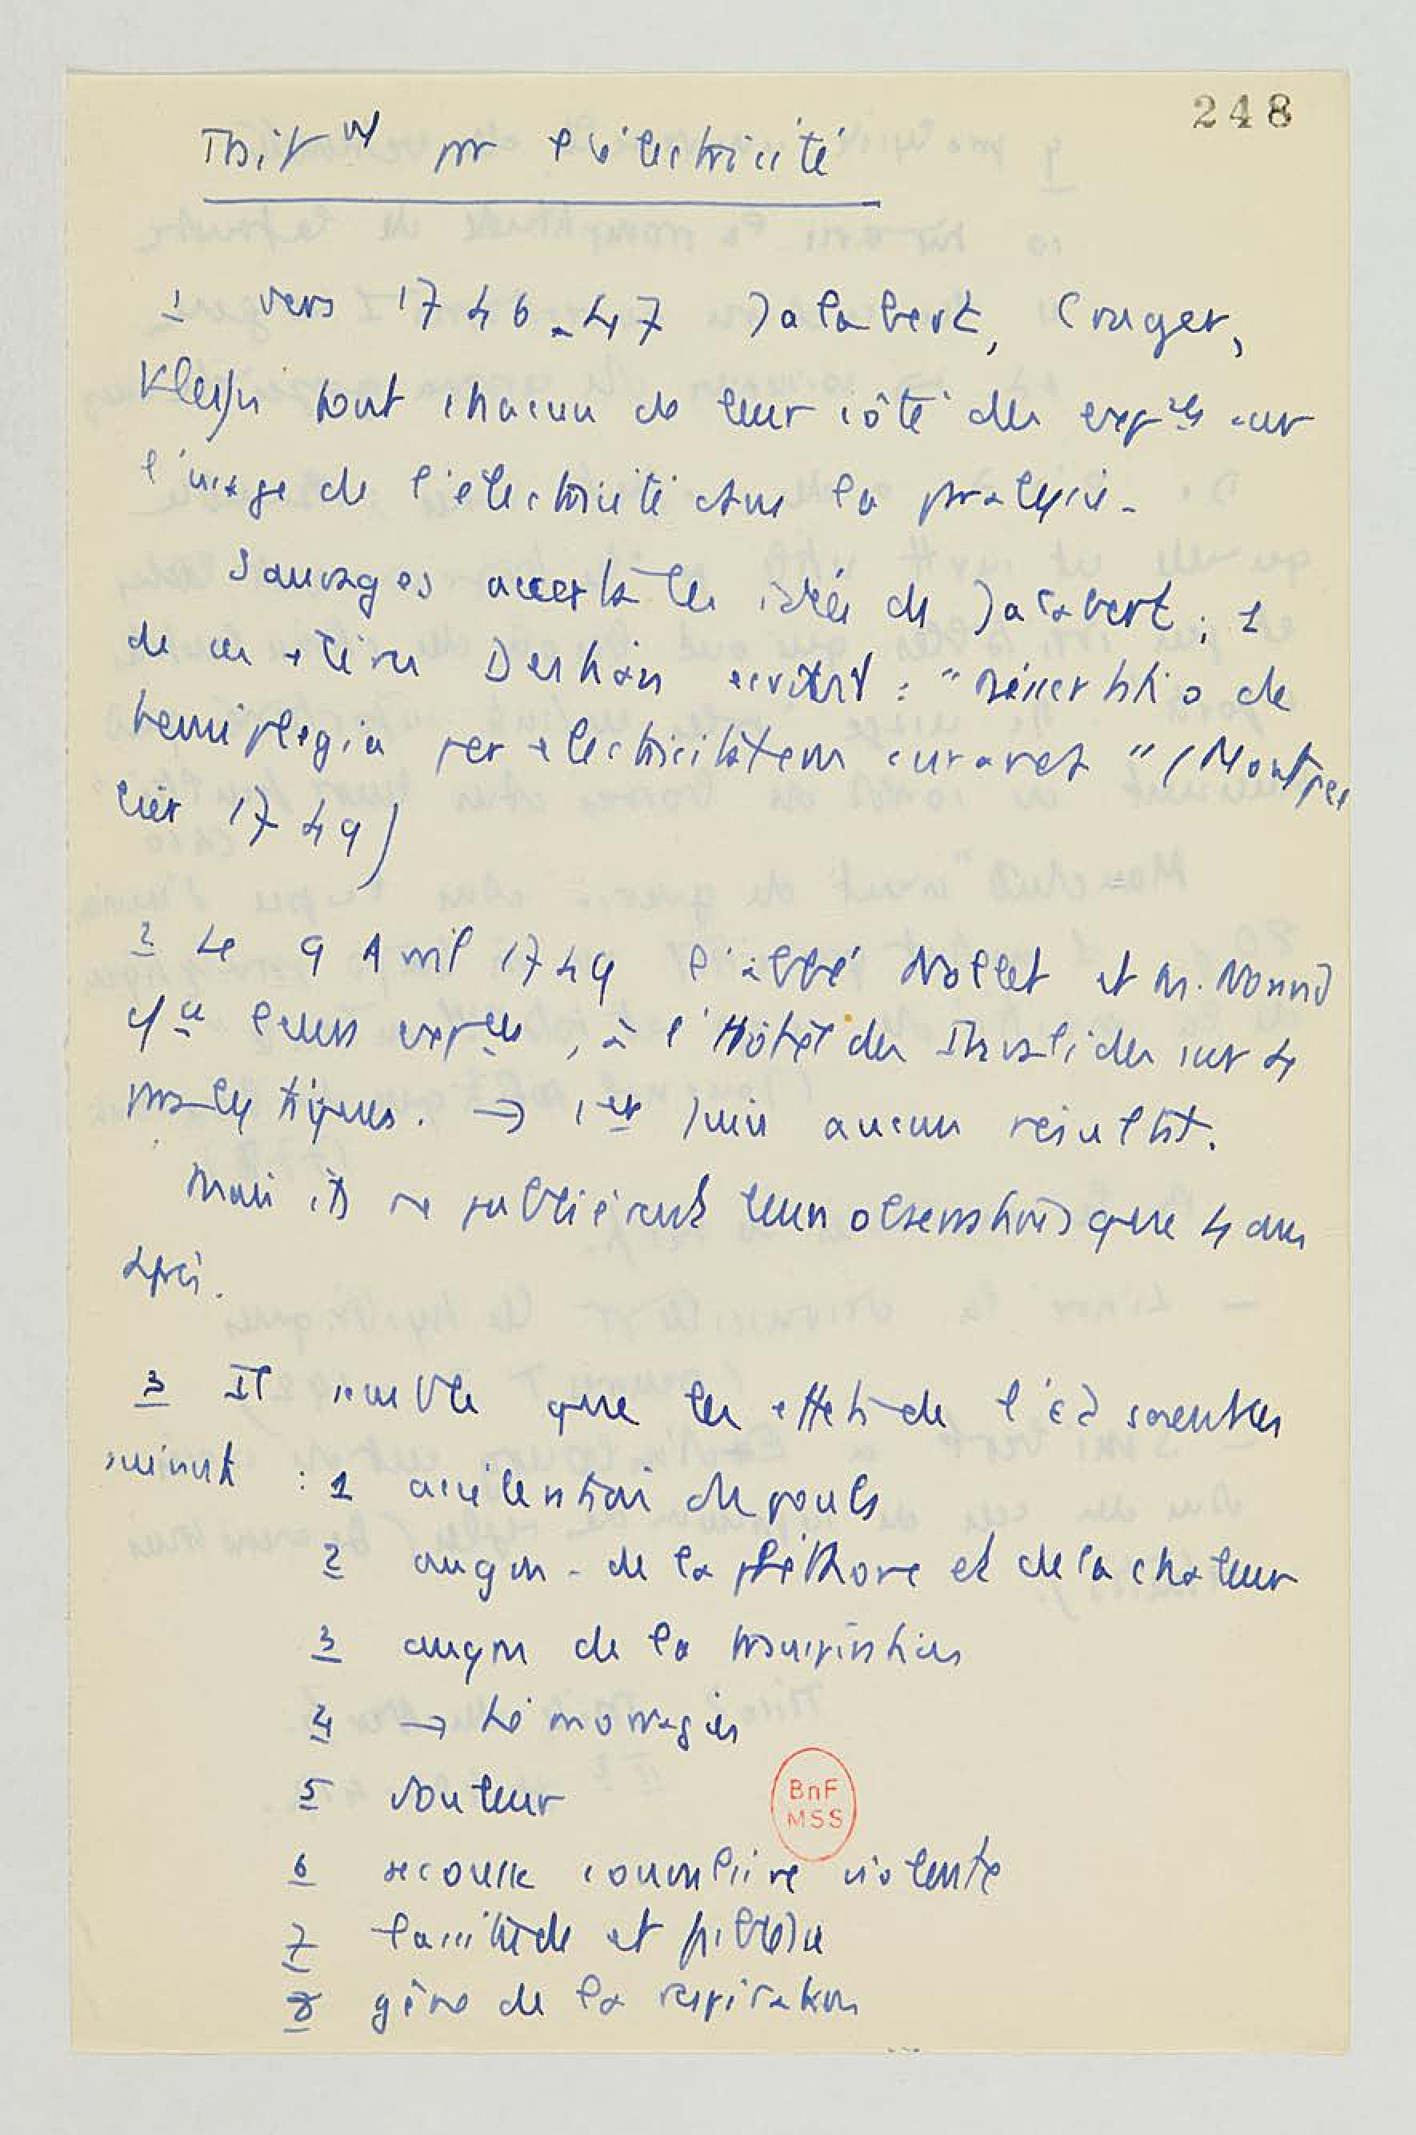 248
Trait<sup>nt</sup> par l'électricité
1 vers 1746-47 Jalabert, Cruger,
font chacun de leur côté des exp<sup>ces</sup> sur
l'usage de l'électricité dans la paralysie.
Sauvages accepta les idées de Jalabert ; 1
de ses élèves Deshais écrivit : "
hemiplegia per electricitatem curanda" (Montpel
lier 1749)
2 Le 9 Avril 1749 l'abbé Nollet et M.
leurs exp<sup>ces</sup>, à l'Hôtel des Invalides sur 4
paralytiques. → 1<sup>er</sup> Juin aucun résultat.
Mais ils ne publièrent leurs observations que 4 ans
après.
3 Il semble que les effets de l'é) soient les
suivants : 1 accélération du pouls
2 augm. de la pléthore et de la chaleur
3 augm de la transpiration
4 → hémorragies
5 douleur
6 secousse convulsive violente
7 lassitude et faiblesse
8 gêne de la respiration
BnF
MSS